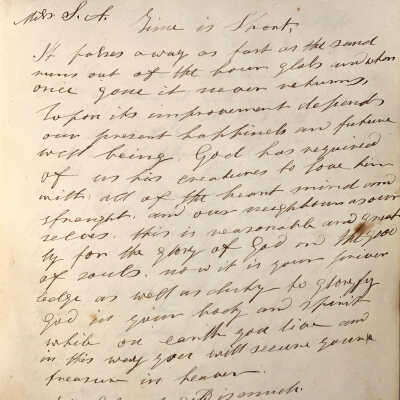 Miss S. A. Time is Short,
It passes away as fast as the sand
runs out of the hour glass and when
once gone it never returns,
Upon its improvement depends
our present happiness and future
well being. God has required
of us his creatures to love him
with all of the heart mind and
strenght. and our neighbour as our
selves. this is reasonable and great
ly for the glory of God and the good
of souls. now it is your priver
ledge as well as duty to glorefy
God in your body and spirit
while on earth you live and
in this way you will secure your
treasure in heaven.